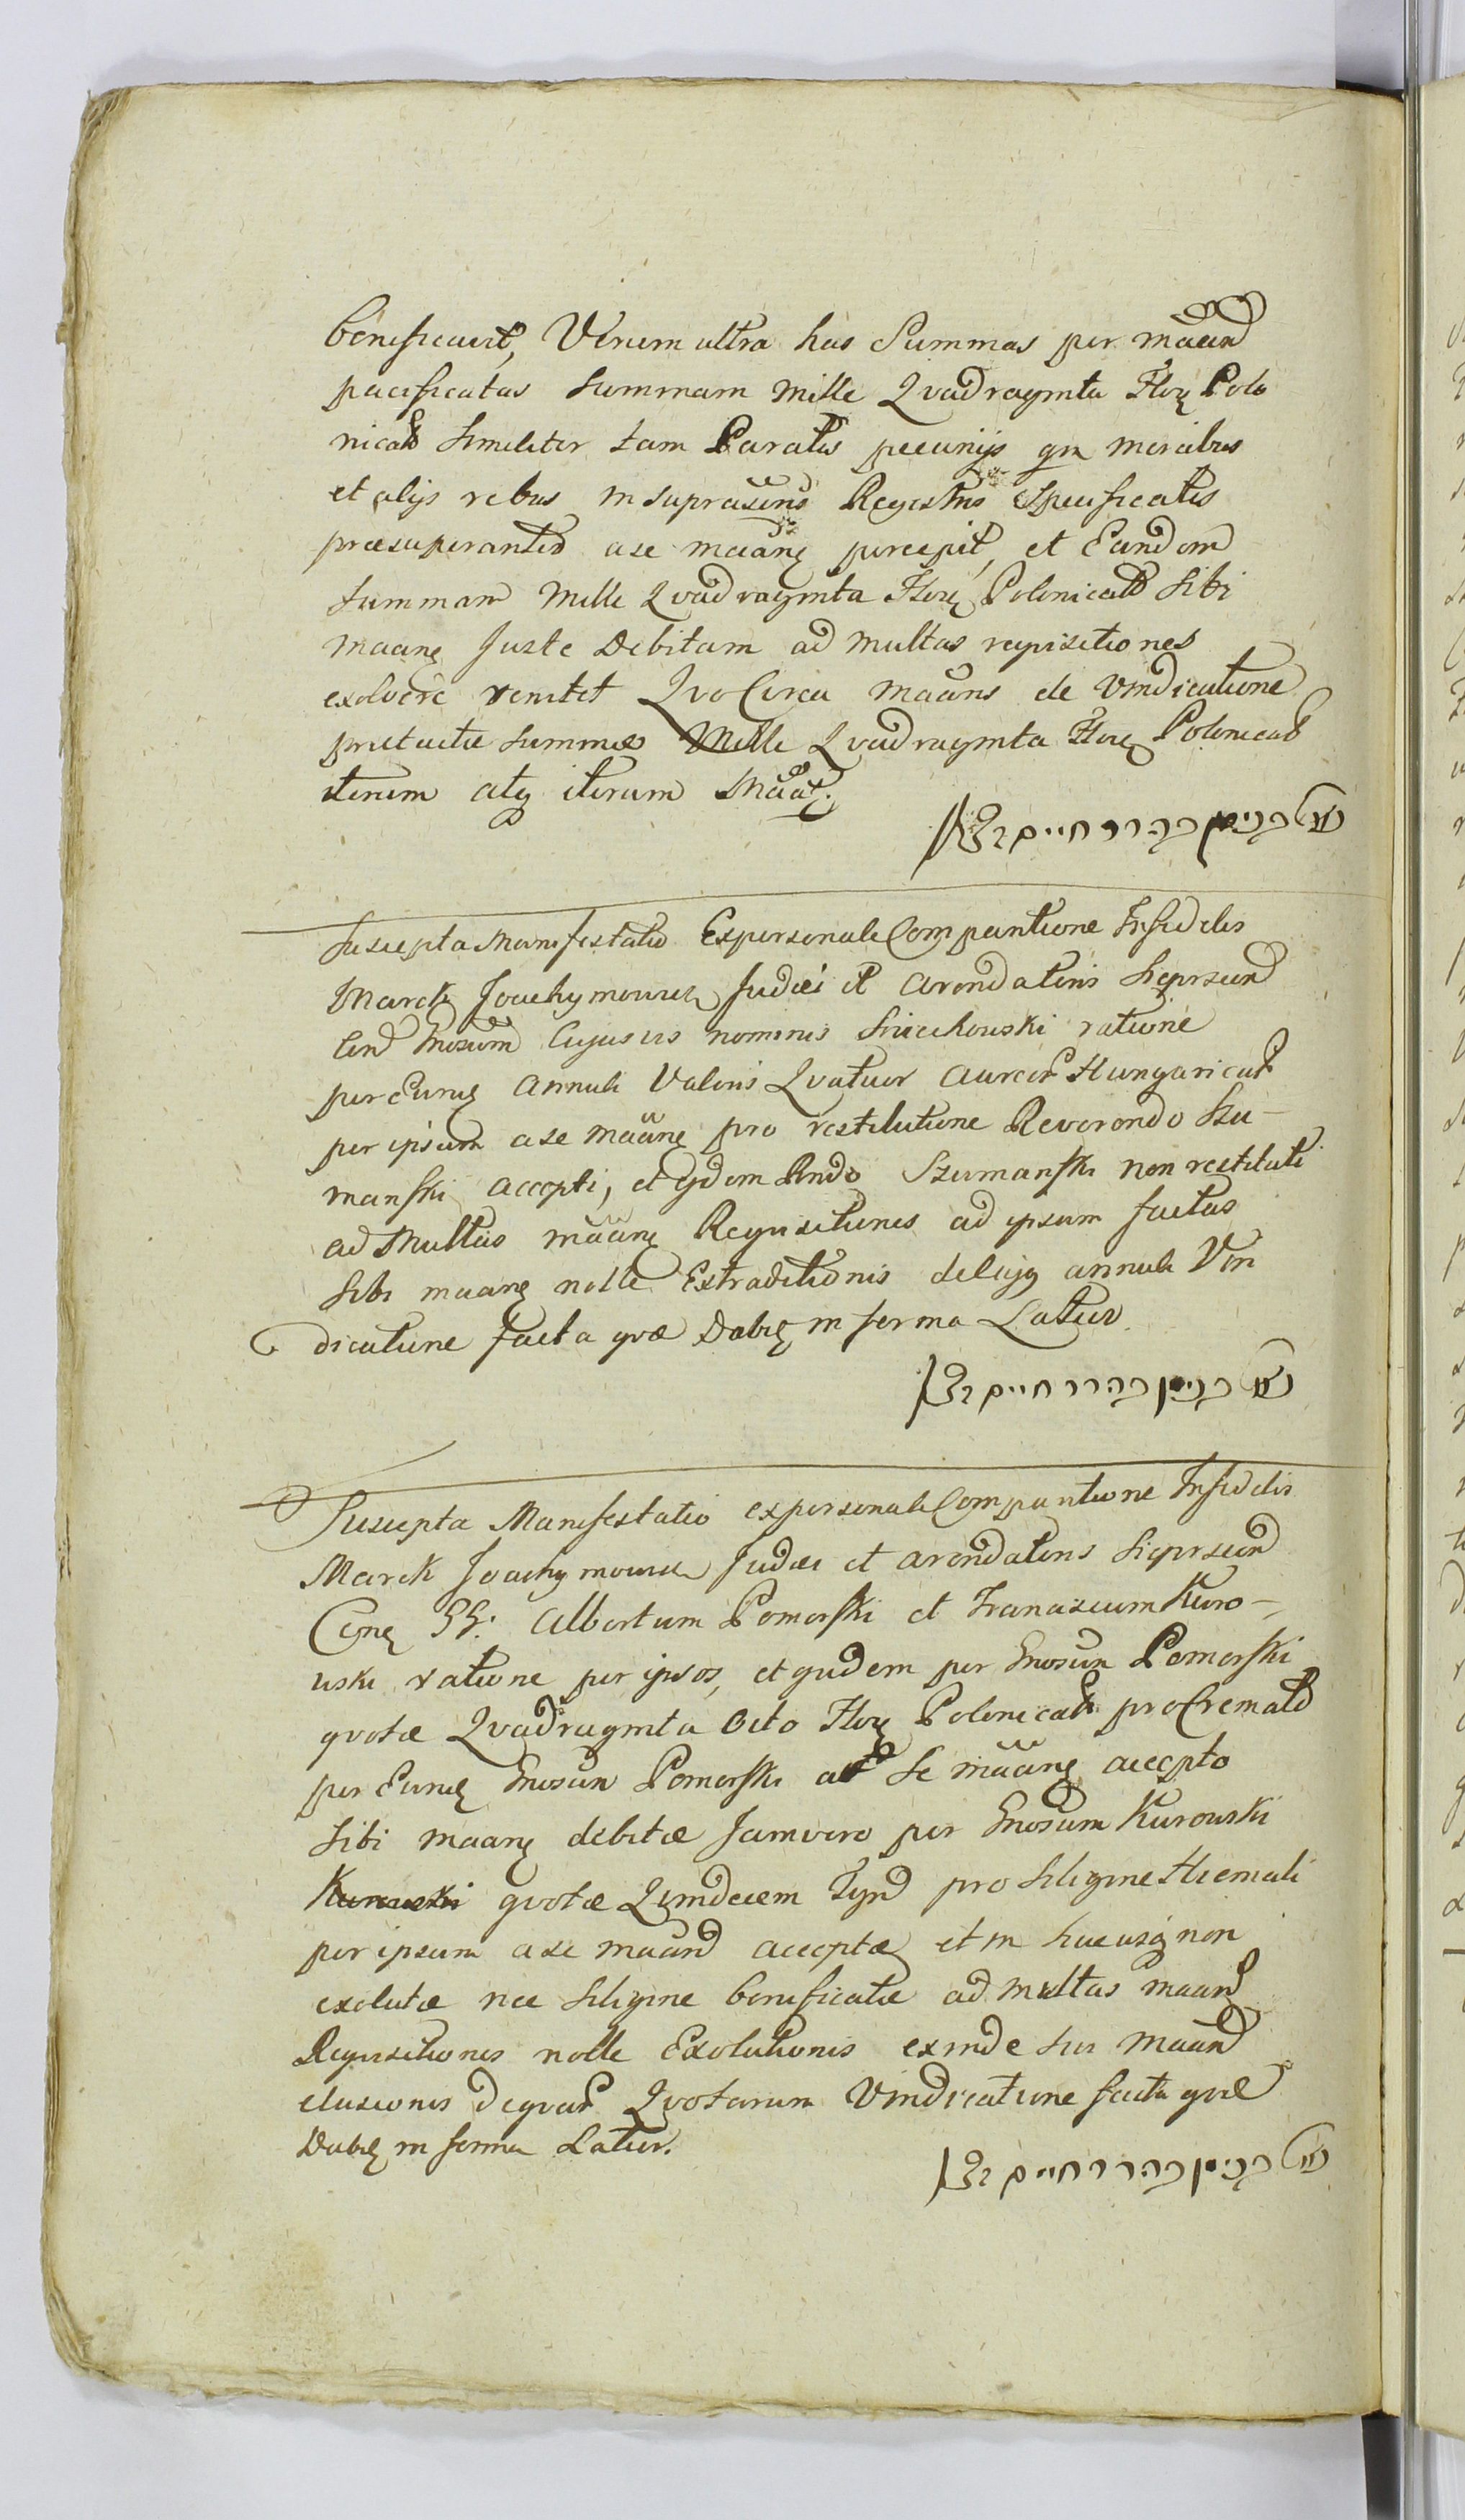 benificavit, Verum ultra has Summas per maand
pacificatas Summam mille Quadraginta Flor Polo
nicab Similiter tam Paratis pecunijs qm mercibus
et alijs rebus in Suprascris Regestris Specificatis
praesuperantes a se maane percepit, et Eandem
Summam Mille Quadraginta Flor Polonicab Sibi
maane Juste Debitam ad multas requisitiones
exolvere renitet Quo Circa maans de Vindicatione
praetactae Summae Mille Quadraginta Flor Polonicab
iterum atq iterum Maat.
חיים
Suscepta Manifestatio Expersonali Comparitione Infidelis
Marek Joachymowicz Judaei et arendatoris
Cen Gnosum Cujusvis nominis ratione
per Eume annuli Valoris Quatuor aureor Hungaricab
per ipsum a se maane pro restitutione Reverendo Szu-
manski accepti, et Eidem Rndo Szumanski non restituti
ad Multas maane Requisitiones ad ipsum factas
Sibi maane nolle Extraditionis deliq annuli Vin
dicatione facta quae Dabit in forma Latior
חיים
Suscepta Manifestatio expersonali Comparitione Infidelis
Marek Joachymowicz Judaei et arendatoris
Cone GG. Albertum Pomorski et Franciscum Kuro-
wski ratione per ipsos, et quidem per Gnosum Pomorski
quotae Quadraginta Octo Flor Polonicab pro Cremato
per Eume Gnosum Pomorski a Se maane accepto
Sibi maane debitae Jam vero per Gnosum Kurowski
Kurowski quotae Quindecem Tynf pro Siligine Hiemali
per ipsum a se maand acceptae et in hucusq non
exolutae nec Siligine bonificatae ad multas maand
Requisitiones nolle Exolutionis exinde Sui maand
elusionis dequar Quotarum Vindicatione facta quae
Dabit in forma Latior.
חיים